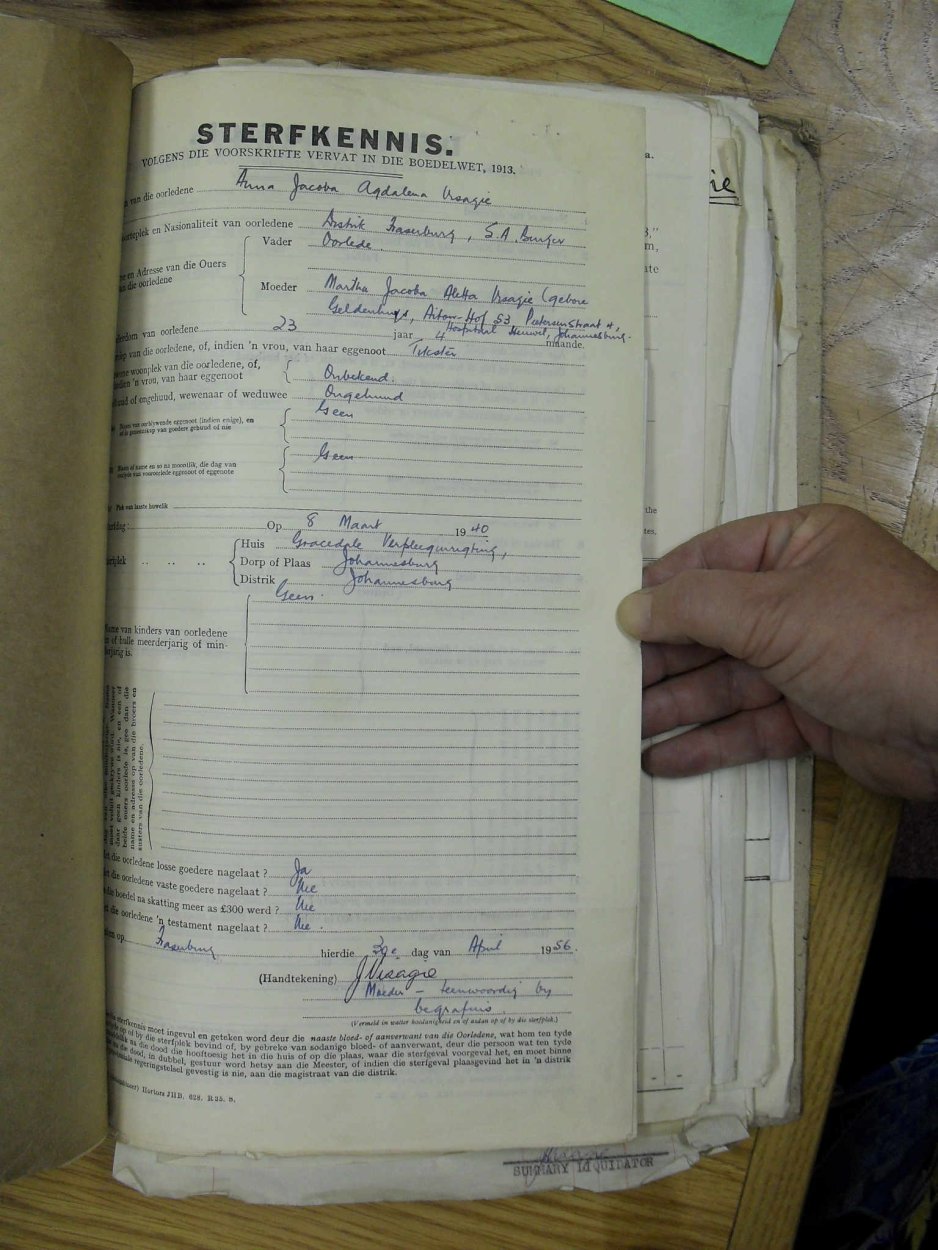 STERFKENNIS.
VOLGENS DIE VOORSKRIFTE VERVAT IN DIE BOEDELWET, 1913.
van die oorledene Anna Jacoba Agdalena Visagie
en Nasionaliteit van oorledene Distrik Fraserburg, S.A. Burger
Vader Oorlede
en Adresse van die Ouers
van die oorledene
Moeder Martha Jacoba Aletta Visagie (gebore
Geldenhuys, Aiton-Hof 53, Pietersenstraat 4,
Hospitaal Heuwel, Johannesburg.
van oorledene 23 jaar 4 maande.
van die oorledene, of, indien 'n vrou, van haar eggenoot Tikster
woonplek van die oorledene, of,
indien 'n vrou, van haar eggenoot Onbekend.
of ongehuud, wewenaar of weduwee Ongehuud
Naam van oorblywende eggenoot (indien enige), en
of in gemeenskap van goedere gehuud of nie Geen
Naam of name en so na moontlik, die dag van
oorlye van vooroorlede eggenoot of eggenote Geen
Plek van laaste huwelik
Op 8 Maart 1940
Huis Gracedale Verpleeginrigting,
Dorp of Plaas Johannesburg
Distrik Johannesburg
Geen.
Name van kinders van oorledene
of hulle meerderjarig of min-
derjarig is.
daar geen kinders is nie, en een of
beide ouers oorlede is, gee dan die
name en adresse op van die broers en
susters van die oorledene.
die oorledene losse goedere nagelaat? Ja
die oorledene vaste goedere nagelaat? Nie
die boedel na skatting meer as £300 werd? Nie
die oorledene 'n testament nagelaat? Nie.
op Fraserburg hierdie 30e dag van April 1956.
(Handtekening) J Visagie
Moeder – teenwoordig by
begrafnis.
(Vermeld in watter hoedanigheid en of aldan op of by die sterfplek.)
sterfkennis moet ingevul en geteken word deur die naaste bloed- of aanverwant van die Oorledene, wat hom ten tyde
op of by die sterfplek bevind of, by gebreke van sodanige bloed- of aanverwant, deur die persoon wat ten tyde
die dood die hooftoesig het in die huis of op die plaas, waar die sterfgeval voorgeval het, en moet binne
die dood, in dubbel, gestuur word hetsy aan die Meester, of indien die sterfgeval plaasgevind het in 'n distrik
regeringstelsel gevestig is nie, aan die magistraat van die distrik.
Hortors JHB. 628. R35. B.
SUMMARY LIQUIDATOR